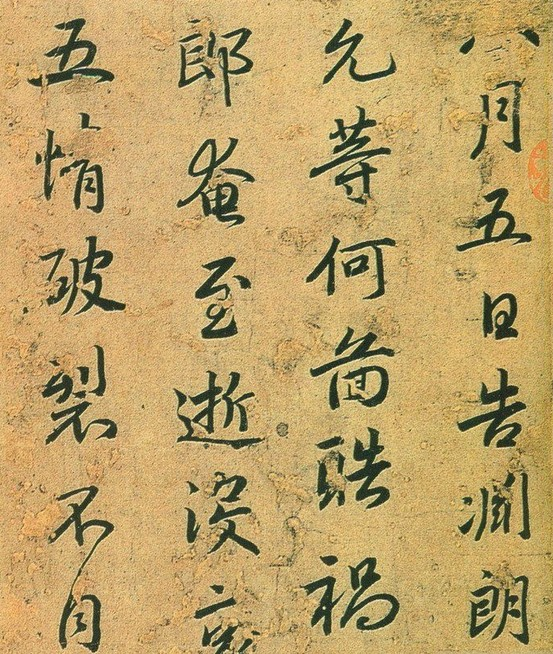 八月五日告淵朗
允等何啚酷禍
郎奄至逝没哀
五情破裂不自